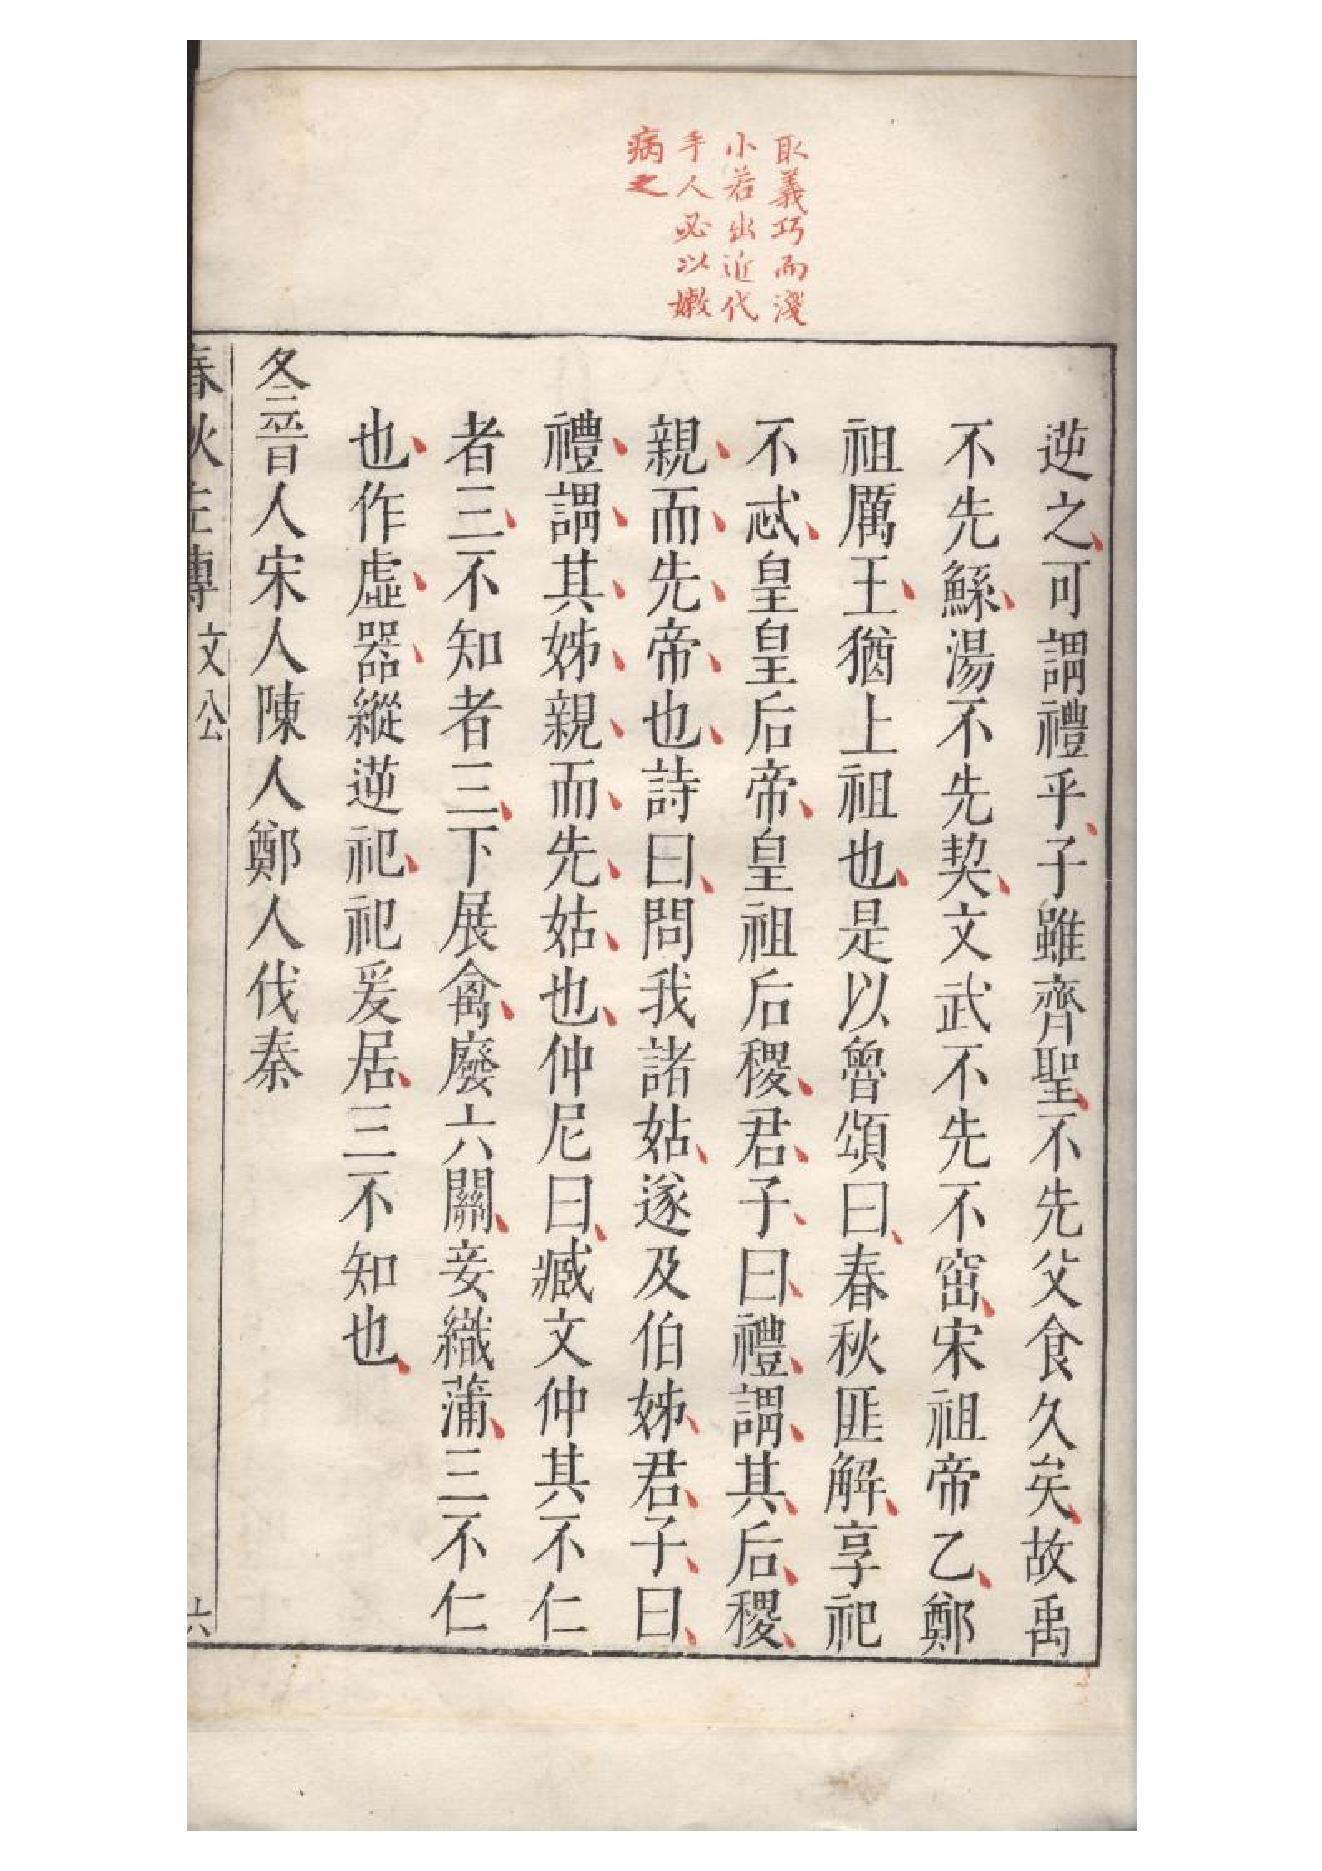 取義巧而淺
小若出近代
手人必以嫩
病之
逆之可謂禮乎子雖齊聖不先父食久矣故禹
不先鯀湯不先契文武不先不窋宋祖帝乙鄭
祖厲王猶上祖也是以魯頌曰春秋匪解享祀
不忒皇皇后帝皇祖后稷君子曰禮謂其后稷
親而先帝也詩曰問我諸姑遂及伯姊君子曰
禮謂其姊親而先姑也仲尼曰臧文仲其不仁
者三不知者三下展禽廢六關妾織蒲三不仁
也作虛器縱逆祀祀爰居三不知也
冬晉人宋人陳人鄭人伐秦
春秋左傳 文公 六